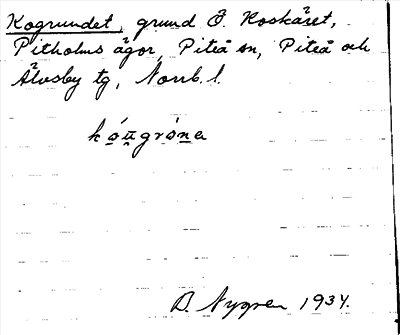 Kogrundet, grund Ö. Koskäret,
Pitholms ägor, Piteå sn, Piteå och
Älvsby tg, Norrb. l.
D. Nygren 1934.